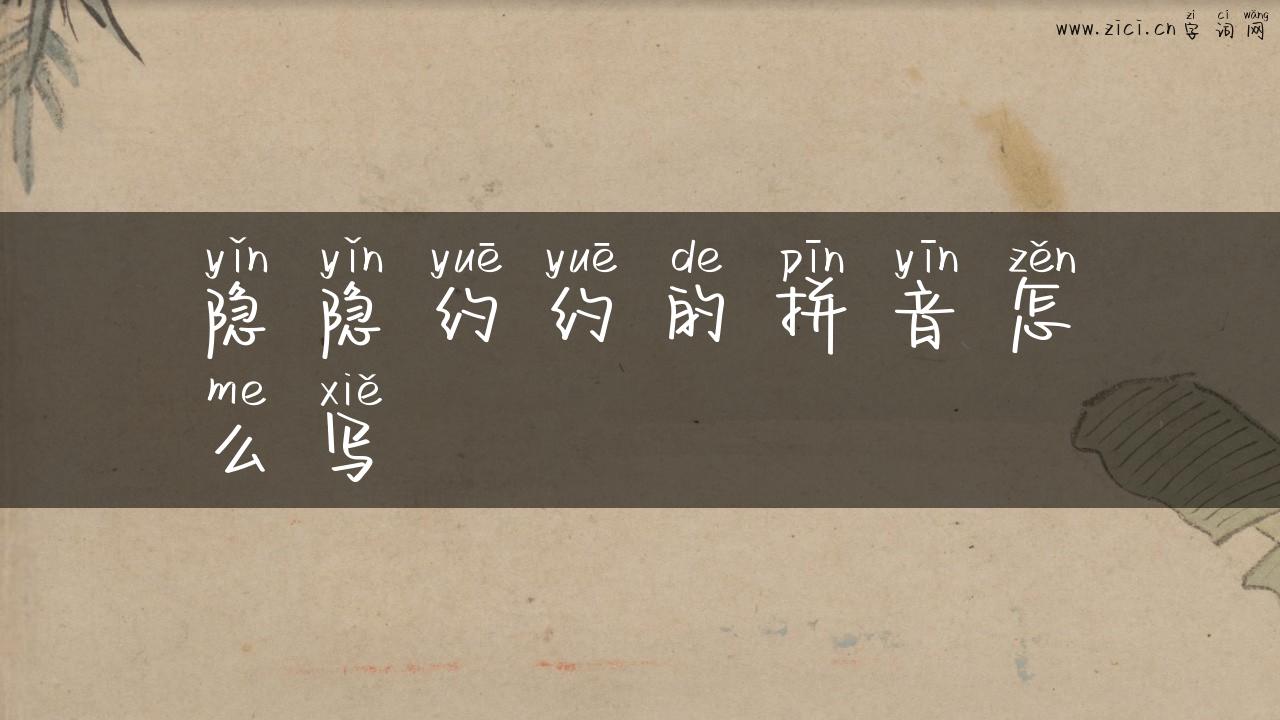 zì cí wǎng
www.zici.cn 字词网
yǐn yǐn yuē yuē de pīn yīn zěn
隐隐约约的拼音怎
me xiě
么写